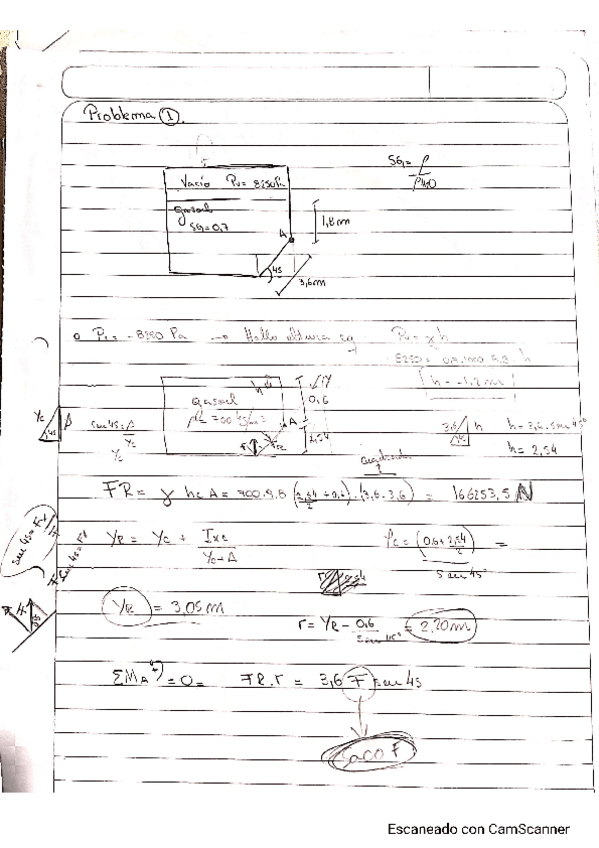 Problema ①.
SG = ρ / ρH2O
Vacío Pv = 8250 Pa
gasoil
SG = 0,7
A
1,8 m
45
3,6 m
Pv = -8250 Pa → Hallo altura eq
Pv = γ h
8250 = 0,7.1000.9,8 . h
h = -1,2 m
gasoil
h
0,6
A
2,54
FR
Yc
45
sen 45 =
Yc
3,6
h
45
h = 3,6 . sen 45°
h = 2,54
cuadrada
FR = γ hc A = 700.9,8 (2,54/2 + 0,6) . (3,6 . 3,6) = 166253,5 N
YR = Yc + Ixc / Yc . A
Yc = (0,6 + 2,54/2) / sen 45° =
YR = 3,05 m
r = YR - 0,6 / sen 45° = 2,20 m
ΣMA = 0 = FR . r = 3,6 F sen 45
Saco F
Escaneado con CamScanner